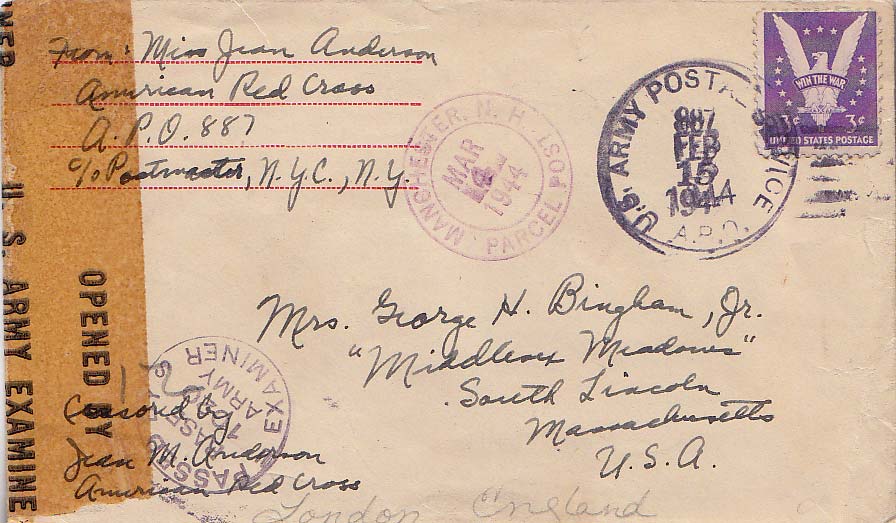 From: Miss Jean Anderson
American Red Cross
A.P.O. 887
c/o Postmaster, N.Y.C., N.Y.
MANCHESTER, N. H. PARCEL POST
MAR
1944
U.S. ARMY POSTAL SERVICE
887
FEB
15
1944
A.P.O.
WIN THE WAR
3¢ 3¢
UNITED STATES POSTAGE
Mrs. George H. Bingham, Jr.
"Middlesex Meadows"
South Lincoln
Massachusetts
U.S.A.
OPENED BY
U. S. ARMY EXAMINE
NER
PASSED BY
BASE
ARMY EXAMINER
Censored by
Jean M. Anderson
American Red Cross
London England